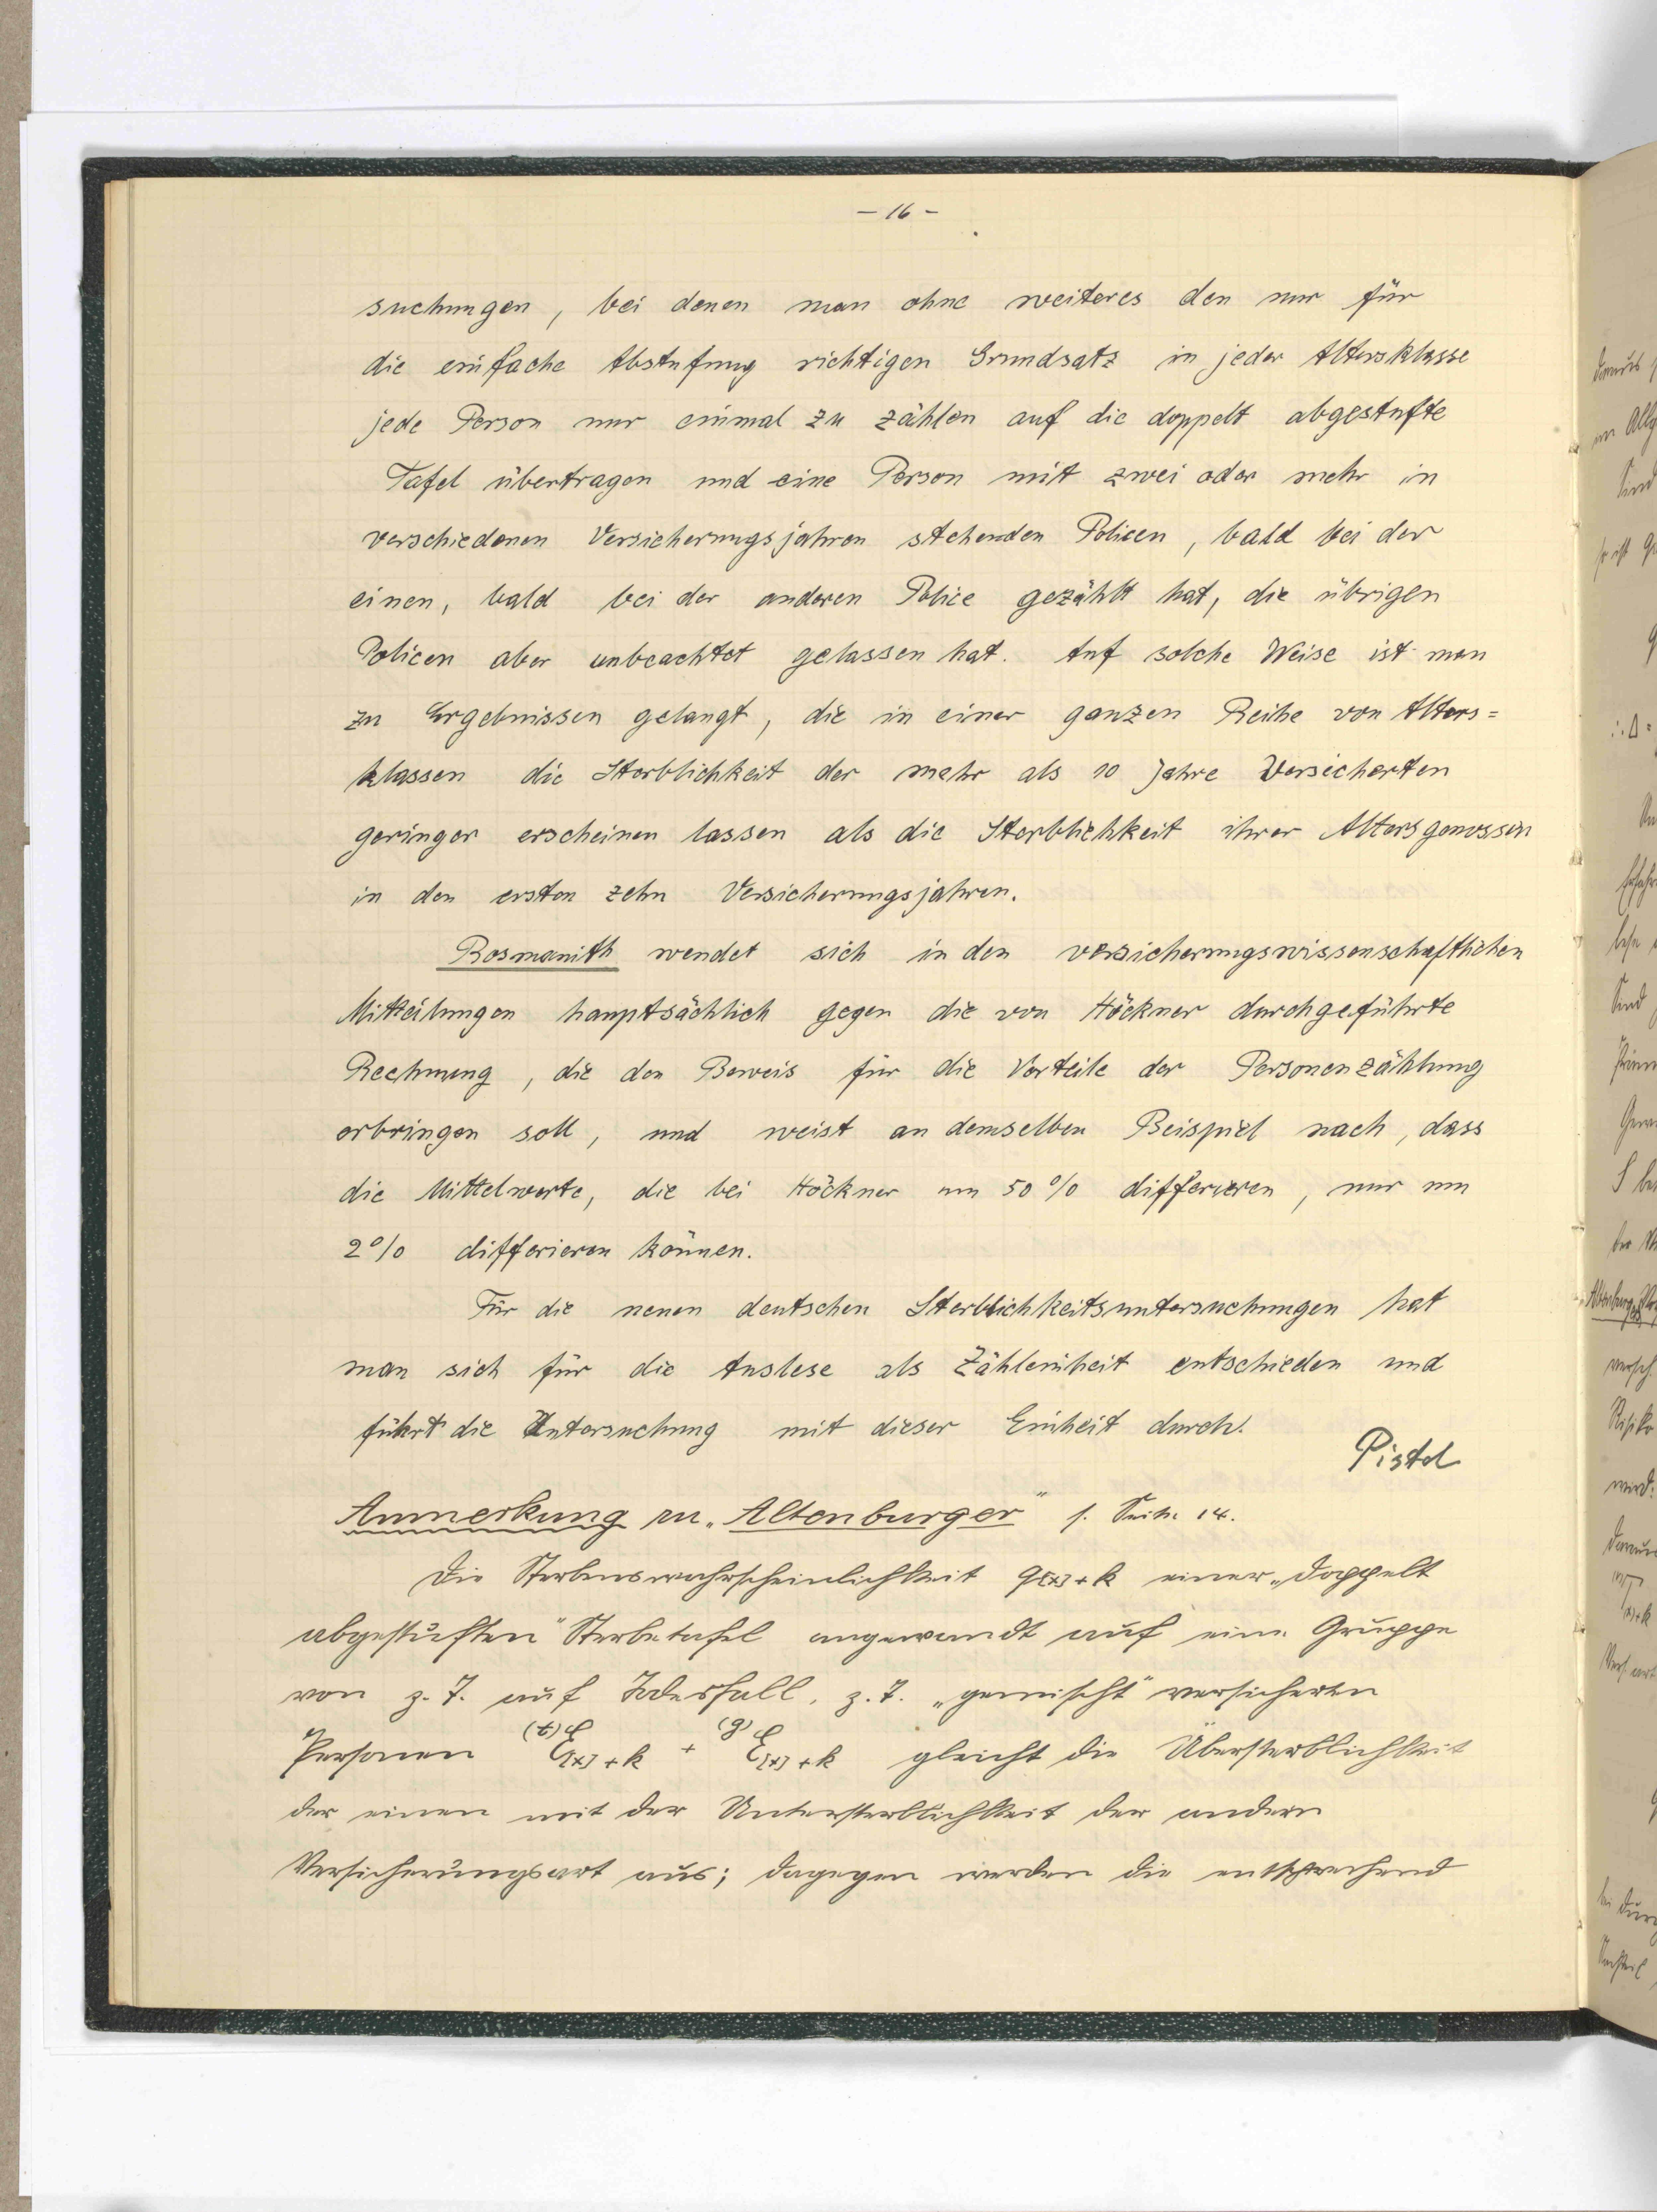 - 16 -
suchungen, bei denen man ohne weiteres den nur für
die einfache Abstufung richtigen Grundsatz in jeder Altersklasse
jede Person nur einmal zu zählen auf die doppelt abgestufte
Tafel übertragen und eine Person mit zwei oder mehr in
verschiedenen Versicherungsjahren stehenden Policen, bald bei der
einen, bald bei der anderen Police gezählt hat, die übrigen
Policen aber unbeachtet gelassen hat. Auf solche Weise ist man
zu Ergebnissen gelangt, die in einer ganzen Reihe von Alters=
klassen die Sterblichkeit der mehr als 10 Jahre Versicherten
geringer erscheinen lassen als die Sterblichkeit ihrer Altersgenossen
in den ersten zehn Versicherungsjahren.
Rosmanith wendet sich in den versicherungswissenschaftlichen
Mitteilungen hauptsächlich gegen die von Höckner durchgeführte
Rechnung, die den Beweis für die Vorteile der Personenzählung
erbringen soll, und weist an demselben Beispiel nach, dass
die Mittelwerte, die bei Höckner um 50 % differieren, nur um
2 % differieren können.
Für die neuen deutschen Sterblichkeitsuntersuchungen hat
man sich für die Auslese als Zähleinheit entschieden und
führt die Untersuchung mit dieser Einheit durch.
Pistel
Anmerkung zu „Altenburger" s. Seite 14.
Die Sterbenswahrscheinlichkeit q[x]+k einer „doppelt
abgestuften" Sterbetafel angewandt auf eine Gruppe
von z. T. auf Todesfall, z. T. „gemischt" versicherten
Personen (t)E[x]+k + (g)E[x]+k gleicht die Übersterblichkeit
der einen mit der Untersterblichkeit der andern
Versicherungsart aus; dagegen werden die entsprechend